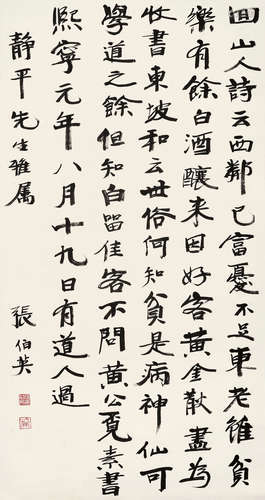 回山人詩云西鄰已富憂不足東老雖貧
樂有餘白酒釀来因好客黃金散盡為
收書東坡和云世俗何知貧是病神仙可
學道之餘但知白留佳客不問黃公覓素書
熙寧元年八月十九日有道人過
静平先生雅属
張伯英